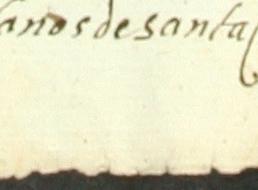 anos de santa